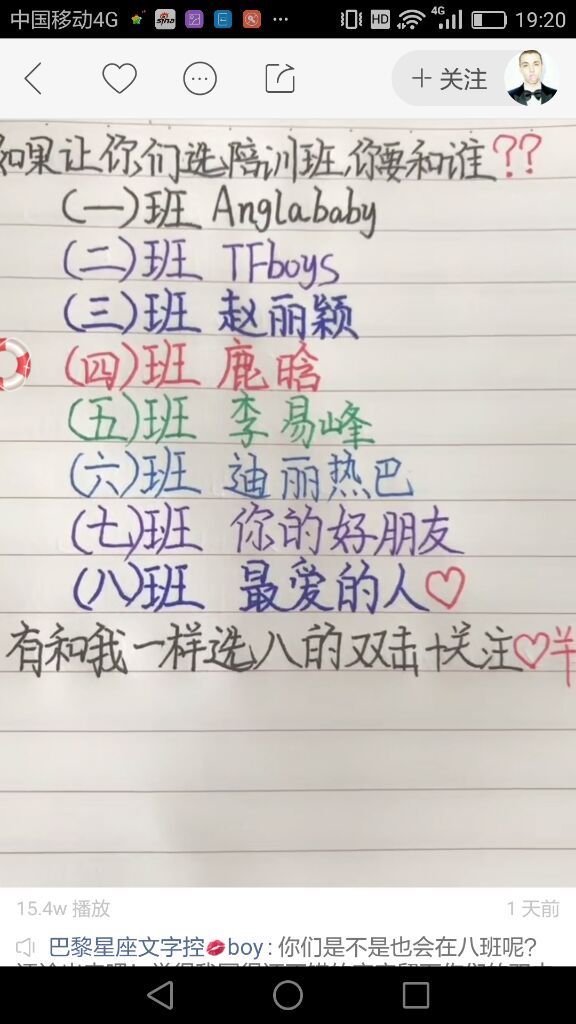 中国移动4G HD 4G 19:20
+ 关注
如果让你们选陪训班,你要和谁??
(一)班 Anglababy
(二)班 TFboys
(三)班 赵丽颖
(四)班 鹿晗
(五)班 李易峰
(六)班 迪丽热巴
(七)班 你的好朋友
(八)班 最爱的人♡
有和我一样选八的双击+关注♡半
15.4w 播放 1 天前
巴黎星座文字控💋boy:你们是不是也会在八班呢?